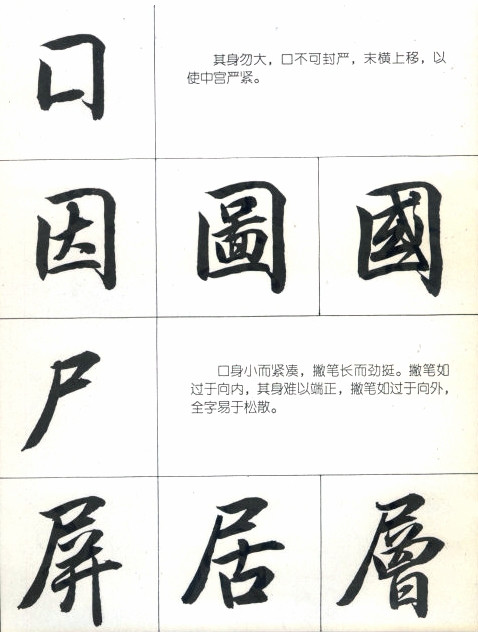 口
其身勿大，口不可封严，末横上移，以
使中宫严紧。
因 圖 國
尸
口身小而紧凑，撇笔长而劲挺。撇笔如
过于向内，其身难以端正，撇笔如过于向外，
全字易于松散。
屏 居 層